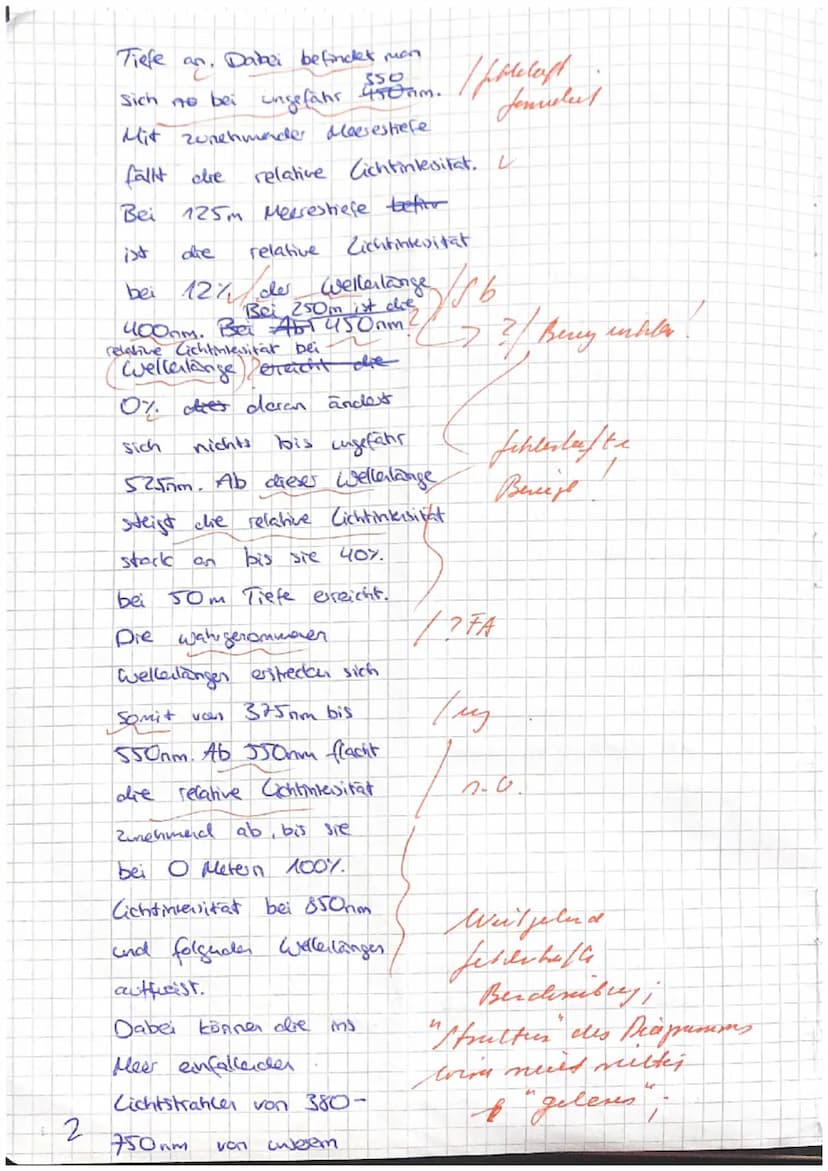 Tiefe an. Dabei befindet man
350
sich no bei ungefähr 450nm. / fehlerhaft
formuliert
Mit zunehmender Meerestiefe
fällt die relative Lichtintesität. ✓
Bei 125m Meerestiefe
ist die relative Lichtintesität
bei 12% der Wellenlänge / Sb
Bei 250m ist die
400nm. Bei Ab 450nm ? ? / Bezug unklar!
relative Lichtintesität bei
(Wellenlänge) erreicht die
0% daran ändert
sich nichts bis ungefähr fehlerhafte
525nm. Ab dieser Wellenlänge Bezüge!
steigt die relative Lichtintensität
stark an bis sie 40%
bei 50m Tiefe erreicht.
Die wahrgenommenen / ? FA
Wellenlängen erstrecken sich
somit von 375nm bis / ug
550nm. Ab 550nm flacht
die relative Lichtintesität / s.o.
zunehmend ab, bis sie
bei 0 Metern 100%
Lichtintesität bei 850nm Weitgehend
und folgenden Wellenlängen fehlerhafte
aufweist. Beschreibung;
Dabei können die ins "Struktur" des Diagramms
Meer einfallenden wird nicht richtig
Lichtstrahlen von 380- "gelesen";
2 750nm von